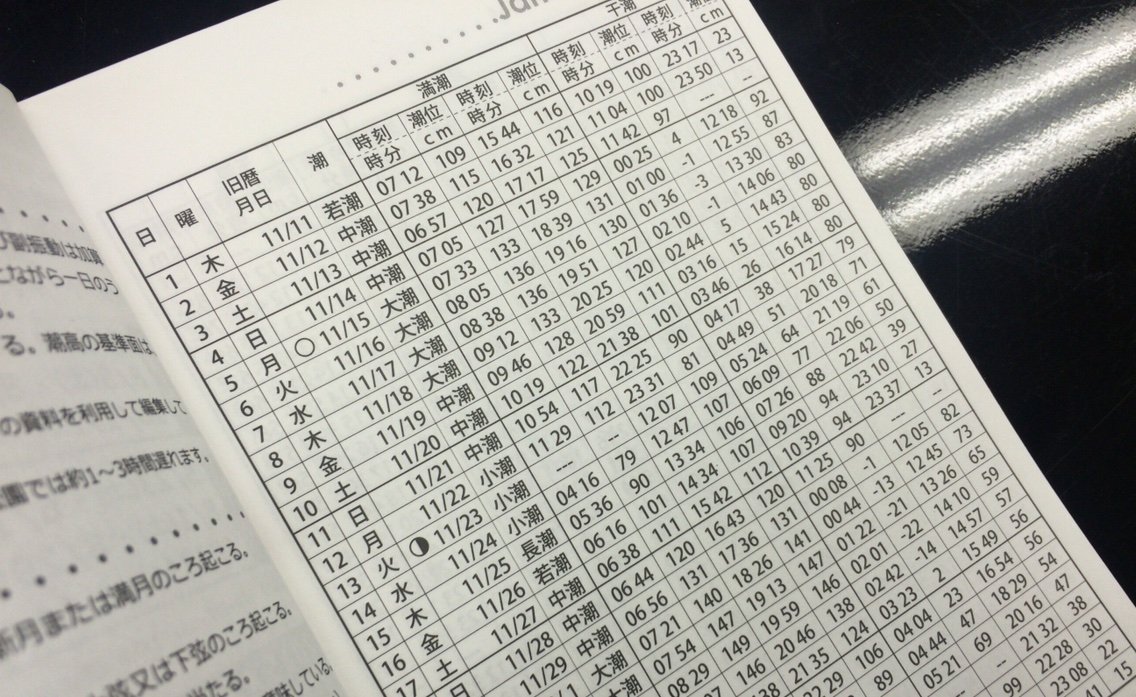 Jan
満潮 干潮
日 曜 旧暦月日 潮 時刻 潮位 時刻 潮位 時刻 潮位 時刻 潮位
時分 cm 時分 cm 時分 cm 時分 cm
1 木 11/11 若潮 07 12 109 15 44 116 10 19 100 23 17 23
2 金 11/12 中潮 07 38 115 16 32 121 11 04 100 23 50 13
3 土 11/13 中潮 06 57 120 17 17 125 11 42 97 --- --
4 日 11/14 中潮 07 05 127 17 59 129 00 25 4 12 18 92
5 月 ○ 11/15 大潮 07 33 133 18 39 131 01 00 -1 12 55 87
6 火 11/16 大潮 08 05 136 19 16 130 01 36 -3 13 30 83
7 水 11/17 大潮 08 38 136 19 51 127 02 10 -1 14 06 80
8 木 11/18 大潮 09 12 133 20 25 120 02 44 5 14 43 80
9 金 11/19 中潮 09 46 128 20 59 111 03 16 15 15 24 80
10 土 11/20 中潮 10 19 122 21 38 101 03 46 26 16 14 80
11 日 11/21 中潮 10 54 117 22 25 90 04 17 38 17 27 79
12 月 11/22 小潮 11 29 112 23 31 81 04 49 51 20 18 71
13 火 ◑ 11/23 小潮 --- -- 12 07 109 05 24 64 21 19 61
14 水 11/24 小潮 04 16 79 12 47 107 06 09 77 22 06 50
15 木 11/25 長潮 05 36 90 13 34 106 07 26 88 22 42 39
16 金 11/26 若潮 06 16 101 14 34 107 09 20 94 23 10 27
17 土 11/27 中潮 06 38 111 15 42 112 10 39 94 23 37 13
日 11/28 中潮 06 44 120 16 43 120 11 25 90 --
11/29 中潮 06 56 131 17 36 131 00 08 -1 12 05 82
大潮 07 21 140 18 26 141 00 44 -13 12 45 73
07 54 147 19 13 147 01 22 -21 13 26 65
08 29 149 19 59 146 02 01 -22 14 10 59
146 20 46 138 02 42 -14 14 57 57
21 35 124 03 23 2 15 49 56
106 04 04 23 16 54 56
89 04 44 47 18 29 54
05 21 69 20 16 47
-- 21 32 38
22 28 30
23 08 22
15
び副振動は加算
ことながら一日のう
る。潮高の基準面は
の資料を利用して編集して
園では約1～3時間遅れます。
新月または満月のころ起こる。
弦又は下弦のころ起こる。
当たる。
意味している。